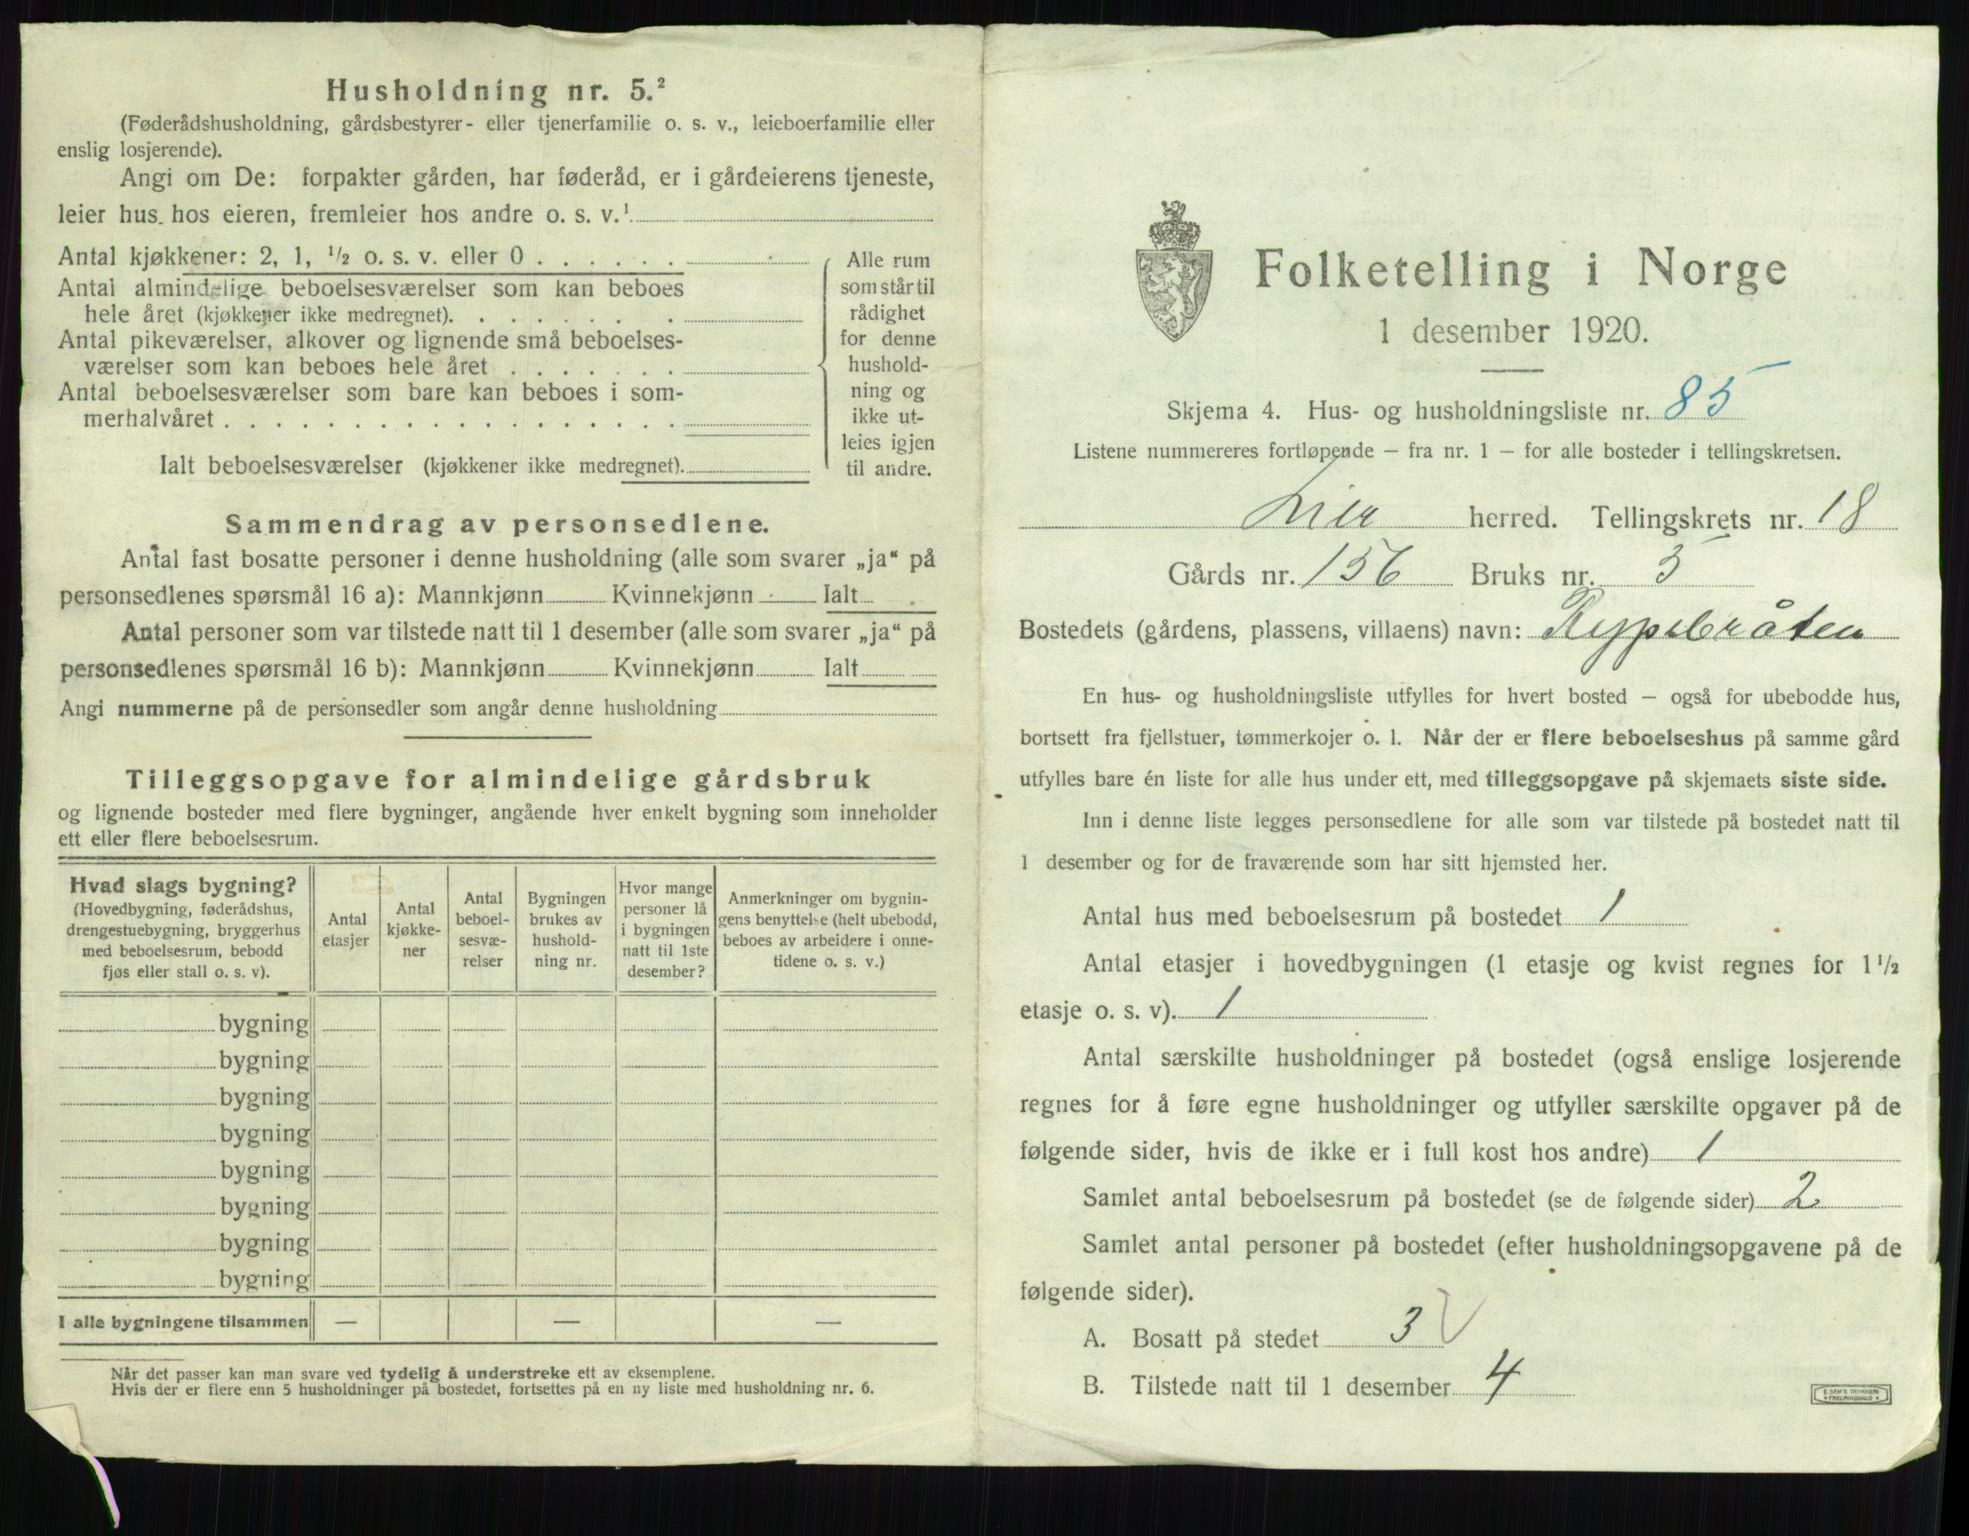 Husholdning nr. 5.²
(Føderådshusholdning, gårdsbestyrer- eller tjenerfamilie o. s. v., leieboerfamilie eller
enslig losjerende).
Angi om De: forpakter gården, har føderåd, er i gårdeierens tjeneste,
leier hus hos eieren, fremleier hos andre o. s. v.¹
Antal kjøkkener: 2, 1, ½ o. s. v. eller 0 . . . . . .
Antal almindelige beboelsesværelser som kan beboes
hele året (kjøkkener ikke medregnet). . . . . . . .
Antal pikeværelser, alkover og lignende små beboelses-
værelser som kan beboes hele året . . . . . . .
Antal beboelsesværelser som bare kan beboes i som-
merhalvåret . . . . . . . . . . . . . . . . . .
Ialt beboelsesværelser (kjøkkener ikke medregnet).
Alle rum
som står til
rådighet
for denne
hushold-
ning og
ikke ut-
leies igjen
til andre.
Sammendrag av personsedlene.
Antal fast bosatte personer i denne husholdning (alle som svarer „ja“ på
personsedlenes spørsmål 16 a): Mannkjønn Kvinnekjønn Ialt
Antal personer som var tilstede natt til 1 desember (alle som svarer „ja“ på
personsedlenes spørsmål 16 b): Mannkjønn Kvinnekjønn Ialt
Angi nummerne på de personsedler som angår denne husholdning
Tilleggsopgave for almindelige gårdsbruk
og lignende bosteder med flere bygninger, angående hver enkelt bygning som inneholder
ett eller flere beboelsesrum.
Hvad slags bygning?
(Hovedbygning, føderådshus,
drengestuebygning, bryggerhus
med beboelsesrum, bebodd
fjøs eller stall o. s. v).
Antal
etasjer
Antal
kjøkke-
ner
Antal
beboel-
sesvæ-
relser
Bygningen
brukes av
hushold-
ning nr.
Hvor mange
personer lå
i bygningen
natt til 1ste
desember?
Anmerkninger om bygnin-
gens benyttelse (helt ubebodd,
beboes av arbeidere i onne-
tidene o. s. v.)
bygning
bygning
bygning
bygning
bygning
bygning
bygning
bygning
I alle bygningene tilsammen — — —
Når det passer kan man svare ved tydelig å understreke ett av eksemplene.
Hvis der er flere enn 5 husholdninger på bostedet, fortsettes på en ny liste med husholdning nr. 6.
Folketelling i Norge
1 desember 1920.
Skjema 4. Hus- og husholdningsliste nr. 85
Listene nummereres fortløpende — fra nr. 1 — for alle bosteder i tellingskretsen.
Lier herred. Tellingskrets nr. 18
Gårds nr. 156 Bruks nr. 5
Bostedets (gårdens, plassens, villaens) navn: Rypebråten
En hus- og husholdningsliste utfylles for hvert bosted — også for ubebodde hus,
bortsett fra fjellstuer, tømmerkojer o. l. Når der er flere beboelseshus på samme gård
utfylles bare én liste for alle hus under ett, med tilleggsopgave på skjemaets siste side.
Inn i denne liste legges personsedlene for alle som var tilstede på bostedet natt til
1 desember og for de fraværende som har sitt hjemsted her.
Antal hus med beboelsesrum på bostedet 1
Antal etasjer i hovedbygningen (1 etasje og kvist regnes for 1½
etasje o. s. v). 1
Antal særskilte husholdninger på bostedet (også enslige losjerende
regnes for å føre egne husholdninger og utfyller særskilte opgaver på de
følgende sider, hvis de ikke er i full kost hos andre) 1
Samlet antal beboelsesrum på bostedet (se de følgende sider) 2
Samlet antal personer på bostedet (efter husholdningsopgavene på de
følgende sider).
A. Bosatt på stedet 3
B. Tilstede natt til 1 desember 4